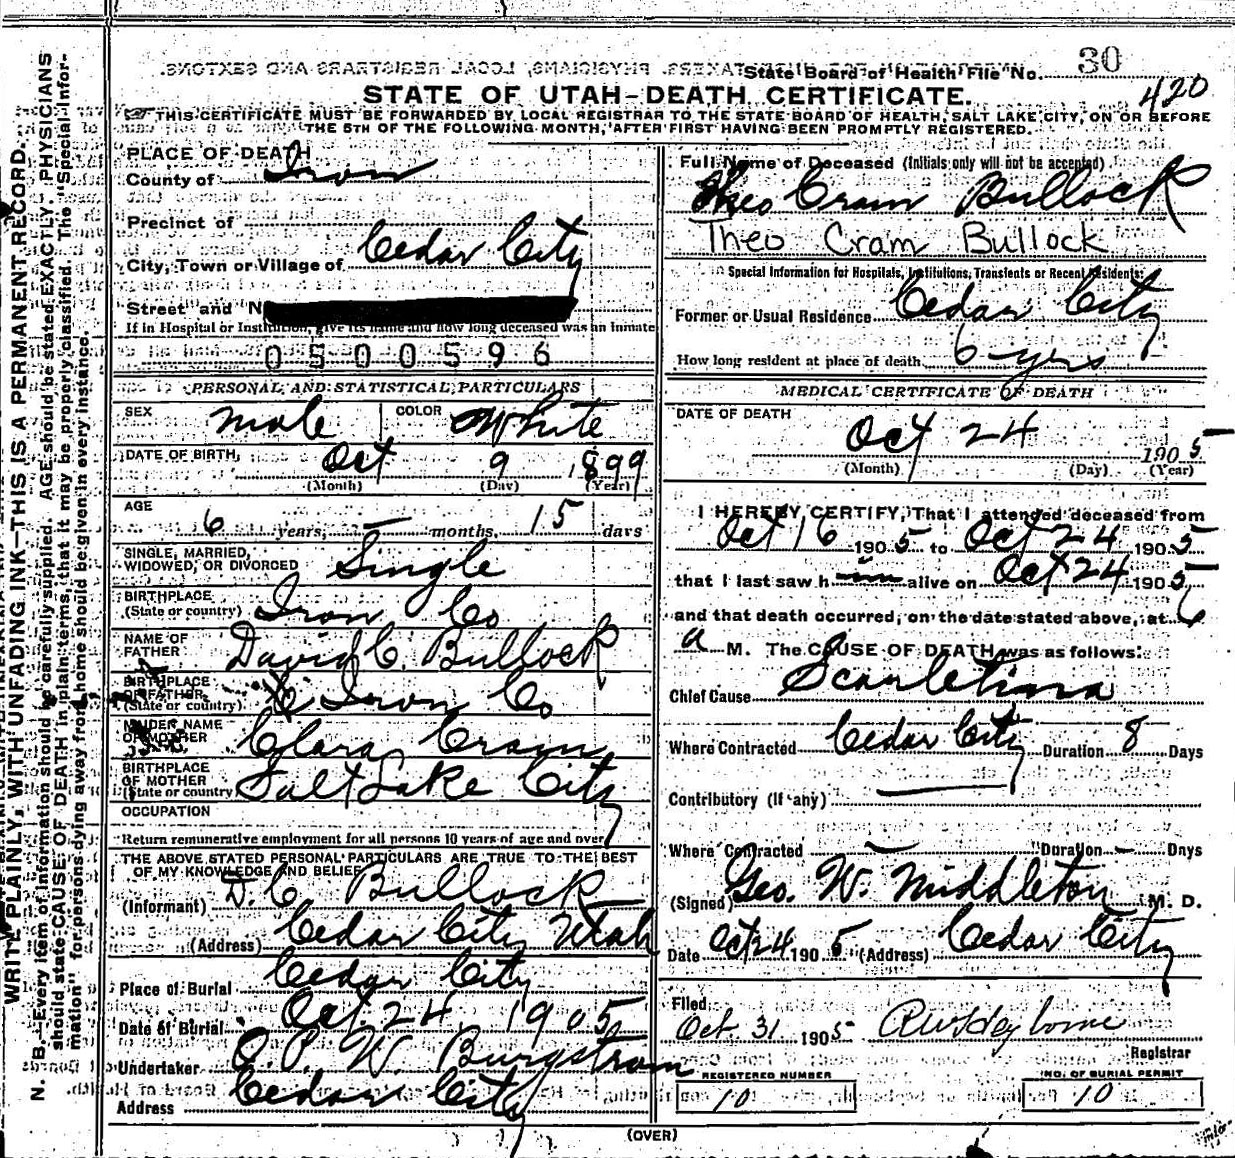 State Board of Health File No. 30
420
STATE OF UTAH-DEATH CERTIFICATE.
THIS CERTIFICATE MUST BE FORWARDED BY LOCAL REGISTRAR TO THE STATE BOARD OF HEALTH, SALT LAKE CITY, ON OR BEFORE
THE 5TH OF THE FOLLOWING MONTH, AFTER FIRST HAVING BEEN PROMPTLY REGISTERED.
PLACE OF DEATH
County of Iron
Precinct of
City, Town or Village of Cedar City
Street and N
If in Hospital or Institution, give its name and how long deceased was an Inmate
0500596
PERSONAL AND STATISTICAL PARTICULARS
SEX male COLOR White
DATE OF BIRTH, Oct 9 1899
(Month) (Day) (Year)
AGE
6 years, - months, 15 days
SINGLE, MARRIED,
WIDOWED, OR DIVORCED Single
BIRTHPLACE
(State or country) Iron Co
NAME OF
FATHER David C. Bullock
BIRTHPLACE
OF FATHER
(State or country) Iron Co
MAIDEN NAME
OF MOTHER Clara Cram
BIRTHPLACE
OF MOTHER
(State or country) Salt Lake City
OCCUPATION
Return remunerative employment for all persons 10 years of age and over
THE ABOVE STATED PERSONAL PARTICULARS ARE TRUE TO THE BEST
OF MY KNOWLEDGE AND BELIEF
(Informant) D. C. Bullock
(Address) Cedar City Utah
Place of Burial Cedar City
Date of Burial Oct. 24 1905
Undertaker O. P. W. Burgstrom
Address Cedar City
Full Name of Deceased (Initials only will not be accepted)
Theo Cram Bullock
Theo Cram Bullock
Special Information for Hospitals, Institutions, Transients or Recent Residents:
Former or Usual Residence Cedar City
How long resident at place of death 6 yrs
MEDICAL CERTIFICATE OF DEATH
DATE OF DEATH
Oct 24 1905
(Month) (Day) (Year)
I HEREBY CERTIFY, That I attended deceased from
Oct 16 1905 to Oct 24 1905
that I last saw h im alive on Oct 24 1905
and that death occurred, on the date stated above, at 6
a M. The CAUSE OF DEATH was as follows:
Chief Cause Scarletina
Where Contracted Cedar City Duration 8 Days
Contributory (If any)
Where Contracted - Duration - Days
(Signed) Geo. W. Middleton M. D.
Date Oct 24 1905 (Address) Cedar City
Filed
Oct. 31 1905
Registrar
REGISTERED NUMBER
10
NO. OF BURIAL PERMIT
10
(OVER)
WRITE PLAINLY, WITH UNFADING INK-THIS IS A PERMANENT RECORD.
N. B.-Every item of information should be carefully supplied. AGE should be stated EXACTLY. PHYSICIANS
should state CAUSE OF DEATH in plain terms, that it may be properly classified. The "Special Infor-
mation" for persons dying away from home should be given in every instance.